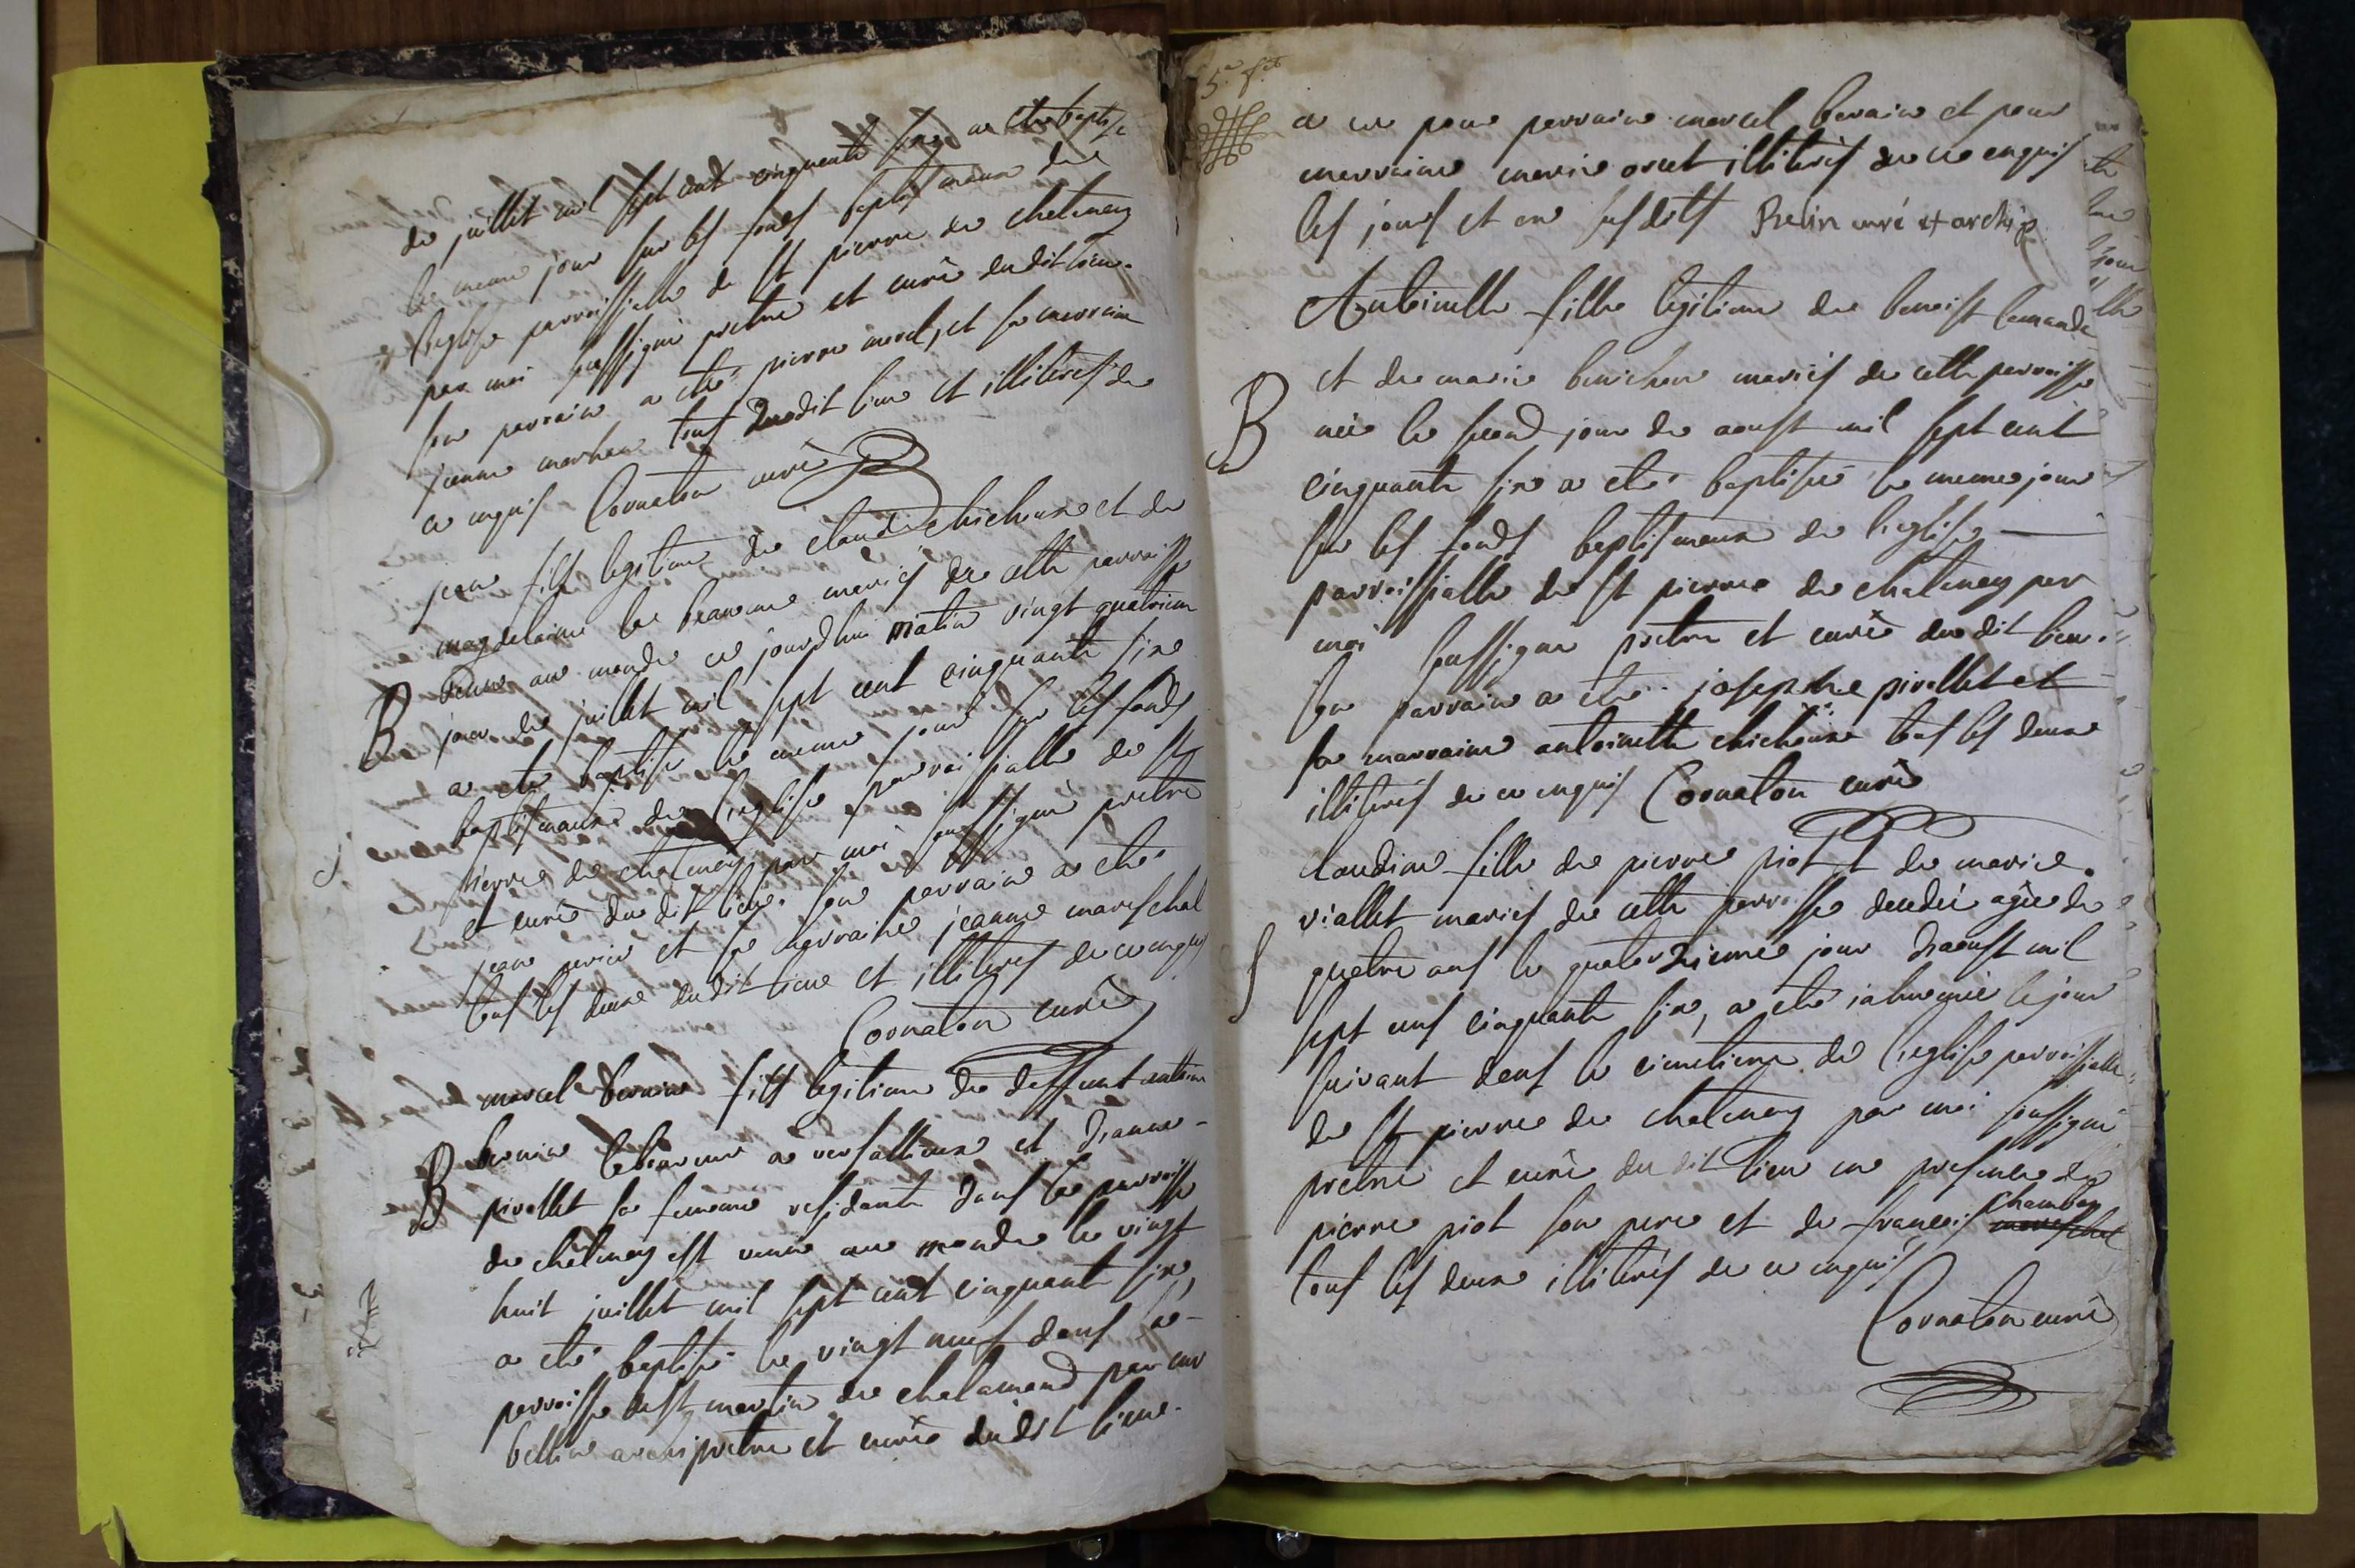 de juillet mil sept cent cinquante six a ete baptisé
le meme jour sur les fonds baptismaux de
l'eglise parroissialle de st pierre de chateney
par moi soussigné pretre et curé dudit lieu.
son parrain a été pierre morel, et sa marraine
jeanne tous dudit lieu et illiterés de
ce enquis Cornaton curé
jean fils legitime de claude chicheux et de
magdelaine mariés de cette parroisse
B venu au monde ce jourdhui matin vingt quatrieme
jour de juillet mil sept cent cinquante six
a ete baptisé le meme jour sur les fonds
baptismaux de l'eglise parroissialle de st
pierre de chateney par moi soussigné pretre
et curé du dit lieu. son parrain a eté
jean et sa marraine jeanne mareschal
tous les deux dudit lieu et illiterés de ce enquis
Cornaton curé
marcel fils legitime de deffunt antoine
B laboureur a versallieux et d'anne
pivollet sa femme residante dans la parroisse
de chateney est venu au monde le vingt
huit juillet mil sept cent cinquante six,
a eté baptisé le vingt neuf dans la
parroisse de st martin de chalamond par mr
bellin archipretre et curé dudit lieu.
5e ft
a eu pour parrain marcel et pour
marraine marie illiterés de ce enquis
les jours et an susdits Belin curé et archip
Antoinette fille legitime de benoist
et de marie mariés de cette parroisse
B née le second jour de aoust mil sept cent
cinquante six a eté baptisée le meme jour
sur les fonds baptismaux de l'eglise
parroissialle de st pierre de chateney par
moi soussigné pretre et curé du dit lieu.
son parrain a eté josephe pivollet et
sa marraine antoinette chicheux tous les deux
illiterés de ce enquis Cornaton curé
claudine fille de pierre piot et de marie
viallet mariés de cette parroisse decedée agée de
S quatre ans le quatorzieme jour d'aoust mil
sept cens cinquante six, a eté inhumée le jour
suivant dans le cimetiere de l'eglise parroissialle
de st pierre de chateney par moi soussigné
pretre et curé du dit lieu en presence de
pierre piot son pere et de francois chambon mareschal
tous les deux illiterés de ce enquis
Cornaton curé